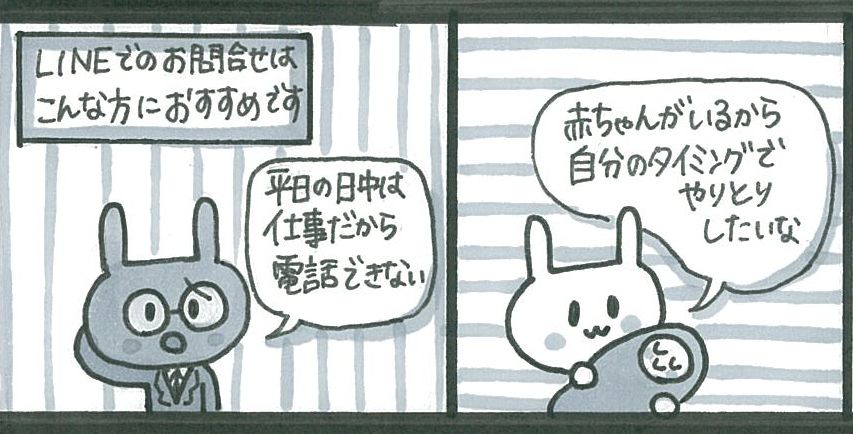 LINEでのお問合せは
こんな方におすすめです
平日の日中は
仕事だから
電話できない
赤ちゃんがいるから
自分のタイミングで
やりとり
したいな